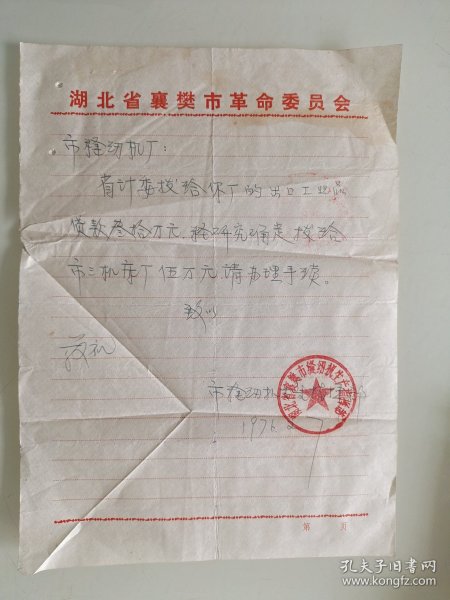 湖北省襄樊市革命委员会
市缝纫机厂:
省计委拨给你厂的出口工业品
贷款叁拾万元,经研究确定拨给
市三机床厂伍万元,请办理手续。
致以
敬礼
市缝纫机
1976.2.7
第 页
孔夫子旧书网
www.kongfz.com